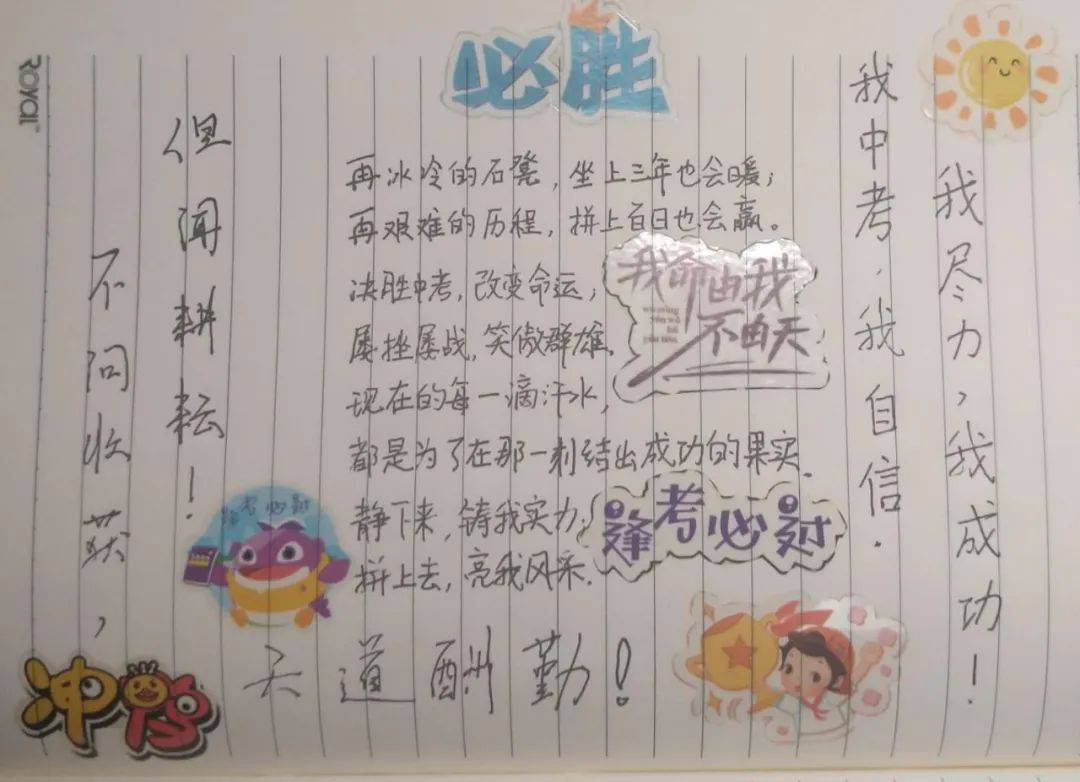 必胜
Royal
再冰冷的石凳，坐上三年也会暖；
再艰难的历程，拼上百日也会赢。
决胜中考，改变命运；
屡挫屡战，笑傲群雄.
现在的每一滴汗水，
都是为了在那一刹结出成功的果实.
静下来，铸我实力；
拼上去，亮我风采.
我命由我
不由天
逢考必过
我中考，我自信.
我尽力，我成功！
不问收获，
但闻耕耘！
逢考必过
天道酬勤！
冲鸭